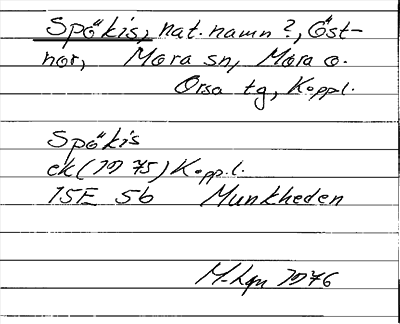 Spökis, nat. namn?, Öst-
nor, Mora sn, Mora o.
Orsa tg, Koppl.
Spökis
ek (1975) Koppl.
15E 5b Munkheden
M-Lqn 1976